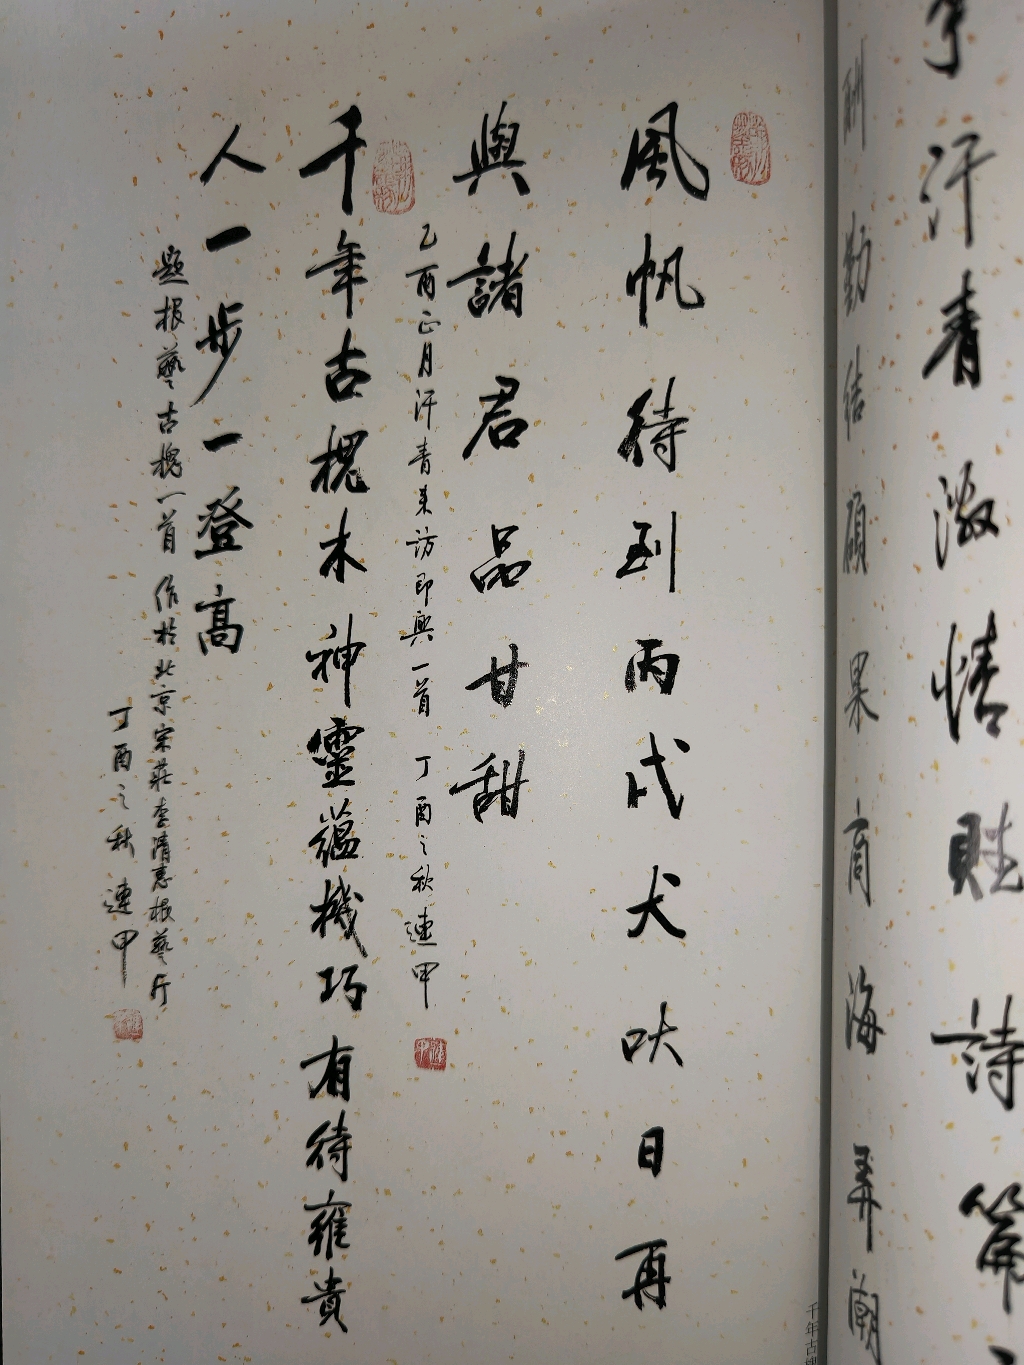 汗青激情賍詩篇
酬勤结碩果商海弄潮
風帆待到丙戌犬吠日再
與諸君品甘甜
乙酉正月汗青来访即興一首 丁酉之秋連甲
千年古槐木神靈蕴機巧有待雍貴
人一步一登高
题根藝古槐一首 作於北京宋莊李清惠根藝斤
丁酉之秋 連甲
千年古槐